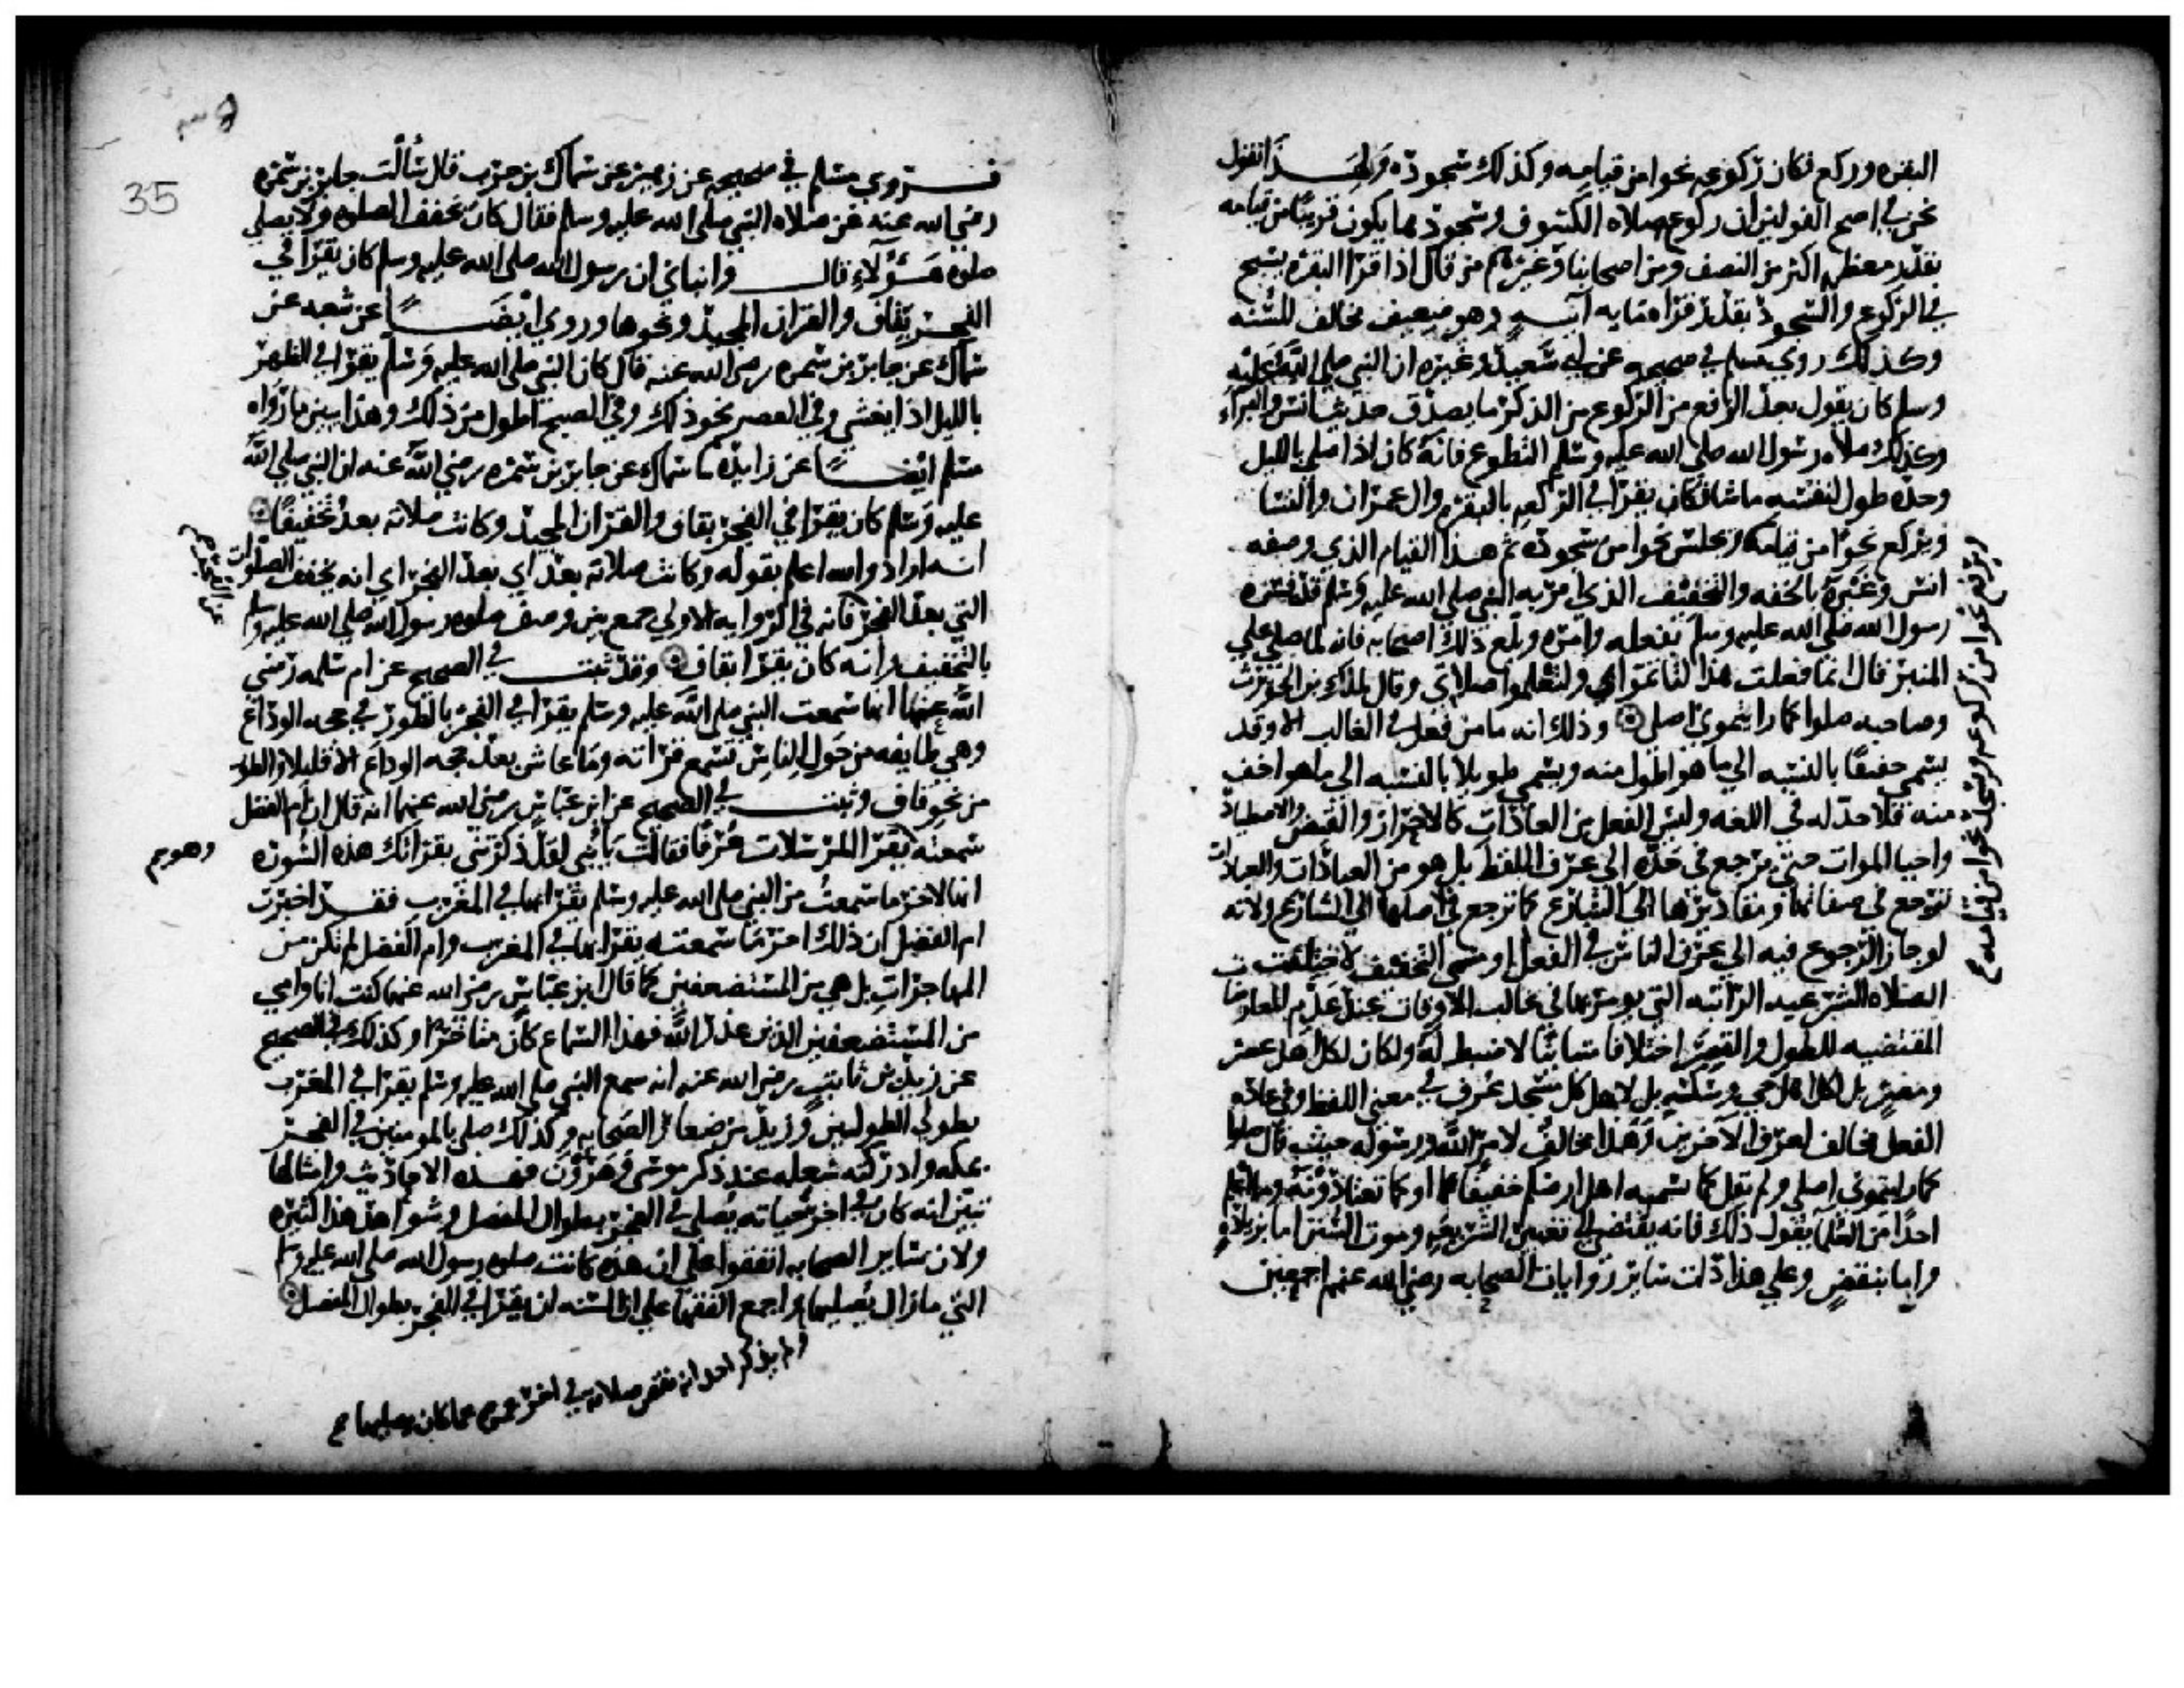 البقره وركع فكان ركوعه نحوا من قيامه وكذلك سجوده ولهذا نقول
نحن في اصح القولين ان ركوع صلاه الكسوف وسجودها يكون قريبا من قيامه
بقدر معظمه اكثر من النصف ومن اصحابنا وغيرهم من قال اذا قرا البقره يسبح
في الركوع والسجود بقدر قراه مايه آيه وهو ضعيف مخالف للسنه
وكذلك روي مسلم في صحيحه عن ابي سعيد وغيره ان النبي صلي الله عليه
وسلم كان يقول بعد الرفع من الركوع من الذكر ما يصدق حديث انس والبراء
وكذلك صلاه رسول الله صلي الله عليه وسلم التطوع فانه كان اذا صلي بالليل
وحده طول لنفسه ما شا فكان يقرا في الركعه بالبقره وال عمران والنسا
ويركع نحوا من قيامه ويجلس نحوا من سجوده ثم هذا القيام الذي وصفه
ويرفع نحوا من ركوعه ويسجد نحوا من قيامه
انس وغيره بالخفه والتخفيف الذي امر به النبي صلي الله عليه وسلم قد فسره
رسول الله صلي الله عليه وسلم بفعله وامره وبلغ ذلك اصحابه فانه لما صلي علي
المنبر قال انما فعلت هذا لتاتموا بي ولتعلموا صلاتي وقال لملك بن الحويرث
وصاحبه صلوا كما رايتموني اصلي وذلك انه ما من فعل في الغالب الا وقد
يسمي خفيفا بالنسبه الي ما هو اطول منه ويسمي طويلا بالنسبه الي ما هو اخف
منه فلا حد له في اللغه وليس الفعل من العادات كالاحراز والقبض والاصطياد
واحيا الموات حتي يرجع في حده الي عرف اللفظ بل هو من العبادات والعبادات
ترجع في صفاتها ومقاديرها الي الشارع كما ترجع في اصلها الي الشارع ولانه
لو جاز الرجوع فيه الي عرف الناس في الفعل او مسمي التخفيف لاختلفت
الصلاه الشرعيه الراتبه التي يومر بها في غالب الاوقات عند عدم المعارضات
المقتضيه للطول والقصر اختلافا متباينا لا ضبط له ولكان لكل اهل عصر
ومصر بل لكل اهل حي وسكه بل لاهل كل مسجد عرف في معني اللفظ وفي عاده
الفعل مخالف لعرف الآخرين وهذا مخالف لامر الله ورسوله حيث قال صلوا
كما رايتموني اصلي ولم يقل كما يسميه اهل ارضكم خفيفا او كما تعتادونه وما اعلم
احدا من العلما يقول ذلك فانه يفضي الي تغيير الشريعه وموت السنن اما بزياده
واما بنقص وعلي هذا دلت ساير روايات الصحابه رضي الله عنهم اجمعين
35
فروي مسلم في صحيحه عن زهير عن سماك بن حرب قال سالت جابر بن سمره
رضي الله عنه عن صلاه النبي صلي الله عليه وسلم فقال كان يخفف الصلوه ولا يصلي
صلوه هؤلاء قال وانباني ان رسول الله صلي الله عليه وسلم كان يقرا في
الفجر بقاف والقران المجيد ونحوها وروي ايضا عن شعبه عن
سماك عن جابر بن سمره رضي الله عنه قال كان النبي صلي الله عليه وسلم يقرا في الظهر
بالليل اذا يغشي وفي العصر نحو ذلك وفي الصبح اطول من ذلك وهذا يبين ما رواه
مسلم ايضا عن زايده ثنا سماك عن جابر بن سمره رضي الله عنه ان النبي صلي الله
عليه وسلم كان يقرا في الفجر بقاف والقران المجيد وكانت صلاته بعد تخفيفا
انه اراد والله اعلم بقوله وكانت صلاته بعد اي بعد الفجر اي انه يخفف الصلوات
التي بعد الفجر فانه في الروايه الاولي جمع بين وصف صلوه رسول الله صلي الله عليه وسلم
بالتخفيف وانه كان يقرا بقاف وقد ثبت في الصحيح عن ام سلمه رضي
الله عنها انها سمعت النبي صلي الله عليه وسلم يقرا في الفجر بالطور في حجه الوداع
وهي طايفه من حول الناس تسمع قراته وما عاش بعد حجه الوداع الا قليلا والطور
من نحو قاف وثبت في الصحيح عن ابن عباس رضي الله عنهما انه قال ان ام الفضل
سمعته يقرا المرسلات عرفا فقالت يا بني لقد ذكرتني بقراتك هذه السوره
وهو
انها لاخر ما سمعت من النبي صلي الله عليه وسلم يقرا بها في المغرب فقد اخبرت
ام الفضل ان ذلك اخر ما سمعته يقرا بها في المغرب وام الفضل لم تكن من
المهاجرات بل هي من المستضعفين كما قال ابن عباس رضي الله عنهما كنت انا وامي
من المستضعفين الذين عذر الله فهذا السماع كان متاخرا وكذلك في الصحيح
عن زيد بن ثابت رضي الله عنه انه سمع النبي صلي الله عليه وسلم يقرا في المغرب
بطولي الطوليين وزيد من صغار الصحابه وكذلك صلي بالمومنين في الفجر
بمكه وادركته سعله عند ذكر موسي وهرون فهذه الاحاديث وامثالها
تبين انه كان في اخر حياته يصلي في الفجر بطوال المفصل وشواهد هذا كثيره
ولان ساير الصحابه اتفقوا علي ان هذه كانت صلوه رسول الله صلي الله عليه وسلم
التي ما زال يصليها واجمع الفقها علي ان السنه ان يقرا في الفجر بطوال المفصل
ولم يذكر احد انه نقص صلاته في اخر عمره عما كان يصليها